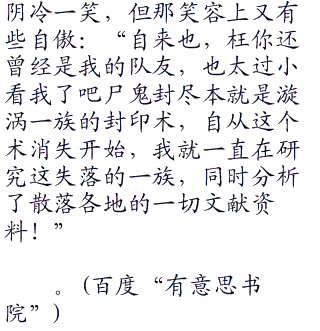 阴冷一笑，但那笑容上又有
些自傲：“自来也，枉你还
曾经是我的队友，也太过小
看我了吧尸鬼封尽本就是漩
涡一族的封印术，自从这个
术消失开始，我就一直在研
究这失落的一族，同时分析
了散落各地的一切文献资
料！”
。(百度“有意思书
院”)